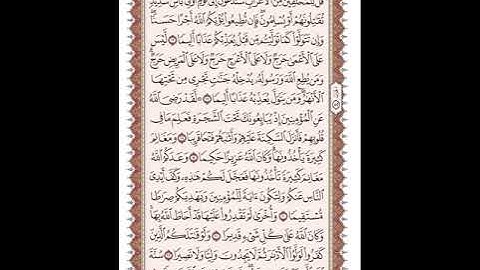 قُل لِّلْمُخَلَّفِينَ مِنَ ٱلْأَعْرَابِ سَتُدْعَوْنَ إِلَىٰ قَوْمٍ أُو۟لِى بَأْسٍ شَدِيدٍ
تُقَٰتِلُونَهُمْ أَوْ يُسْلِمُونَ ۖ فَإِن تُطِيعُوا۟ يُؤْتِكُمُ ٱللَّهُ أَجْرًا حَسَنًا ۖ
وَإِن تَتَوَلَّوْا۟ كَمَا تَوَلَّيْتُم مِّن قَبْلُ يُعَذِّبْكُمْ عَذَابًا أَلِيمًا ١٦ لَّيْسَ
عَلَى ٱلْأَعْمَىٰ حَرَجٌ وَلَا عَلَى ٱلْأَعْرَجِ حَرَجٌ وَلَا عَلَى ٱلْمَرِيضِ حَرَجٌ ۗ
وَمَن يُطِعِ ٱللَّهَ وَرَسُولَهُۥ يُدْخِلْهُ جَنَّٰتٍ تَجْرِى مِن تَحْتِهَا
ٱلْأَنْهَٰرُ ۖ وَمَن يَتَوَلَّ يُعَذِّبْهُ عَذَابًا أَلِيمًا ١٧ ۞ لَّقَدْ رَضِىَ ٱللَّهُ
عَنِ ٱلْمُؤْمِنِينَ إِذْ يُبَايِعُونَكَ تَحْتَ ٱلشَّجَرَةِ فَعَلِمَ مَا فِى
قُلُوبِهِمْ فَأَنزَلَ ٱلسَّكِينَةَ عَلَيْهِمْ وَأَثَٰبَهُمْ فَتْحًا قَرِيبًا ١٨ وَمَغَانِمَ
كَثِيرَةً يَأْخُذُونَهَا ۗ وَكَانَ ٱللَّهُ عَزِيزًا حَكِيمًا ١٩ وَعَدَكُمُ ٱللَّهُ
مَغَانِمَ كَثِيرَةً تَأْخُذُونَهَا فَعَجَّلَ لَكُمْ هَٰذِهِۦ وَكَفَّ أَيْدِىَ
ٱلنَّاسِ عَنكُمْ وَلِتَكُونَ ءَايَةً لِّلْمُؤْمِنِينَ وَيَهْدِيَكُمْ صِرَٰطًا
مُّسْتَقِيمًا ٢٠ وَأُخْرَىٰ لَمْ تَقْدِرُوا۟ عَلَيْهَا قَدْ أَحَاطَ ٱللَّهُ بِهَا ۚ
وَكَانَ ٱللَّهُ عَلَىٰ كُلِّ شَىْءٍ قَدِيرًا ٢١ وَلَوْ قَٰتَلَكُمُ ٱلَّذِينَ
كَفَرُوا۟ لَوَلَّوُا۟ ٱلْأَدْبَٰرَ ثُمَّ لَا يَجِدُونَ وَلِيًّا وَلَا نَصِيرًا ٢٢ سُنَّةَ